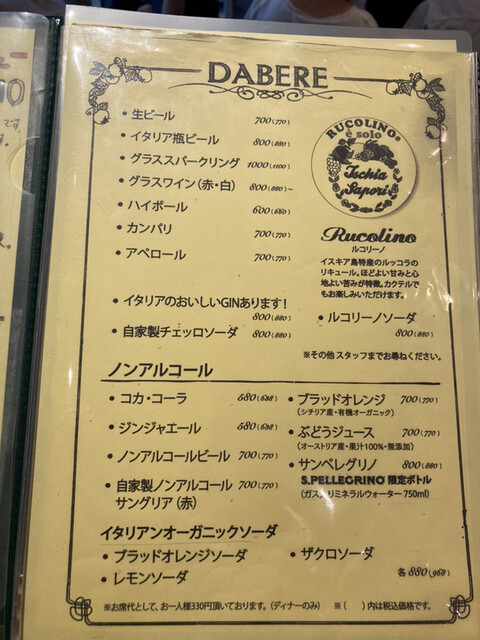 DABERE
・生ビール 700(770)
・イタリア瓶ビール 800(880)
・グラススパークリング 1000(1100)
・グラスワイン(赤・白) 800(880)~
・ハイボール 600(660)
・カンパリ 700(770)
・アペロール 700(770)
・イタリアのおいしいGINあります!
800(880)
・自家製チェッロソーダ 800(880)
RUCOLINO®
è solo
Ischia
Sapori
Rucolino
ルコリーノ
イスキア島特産のルッコラの
リキュール。ほどよい甘みと心
地よい苦みが特徴。カクテルで
もお楽しみいただけます。
・ルコリーノソーダ
800(880)
※その他 スタッフまでお尋ねください。
ノンアルコール
・コカ・コーラ 580(638)
・ジンジャエール 580(638)
・ノンアルコールビール 700(770)
・自家製ノンアルコール 700(770)
サングリア(赤)
・ブラッドオレンジ 700(770)
(シチリア産・有機オーガニック)
・ぶどうジュース 700(770)
(オーストリア産・果汁100%・無添加)
・サンペレグリノ 800(880)
S.PELLEGRINO 限定ボトル
(ガス入りミネラルウォーター 750ml)
イタリアンオーガニックソーダ
・ブラッドオレンジソーダ ・ザクロソーダ
・レモンソーダ 各 880(968)
※お席代として、お一人様330円頂いております。(ディナーのみ) ※( )内は税込価格です。